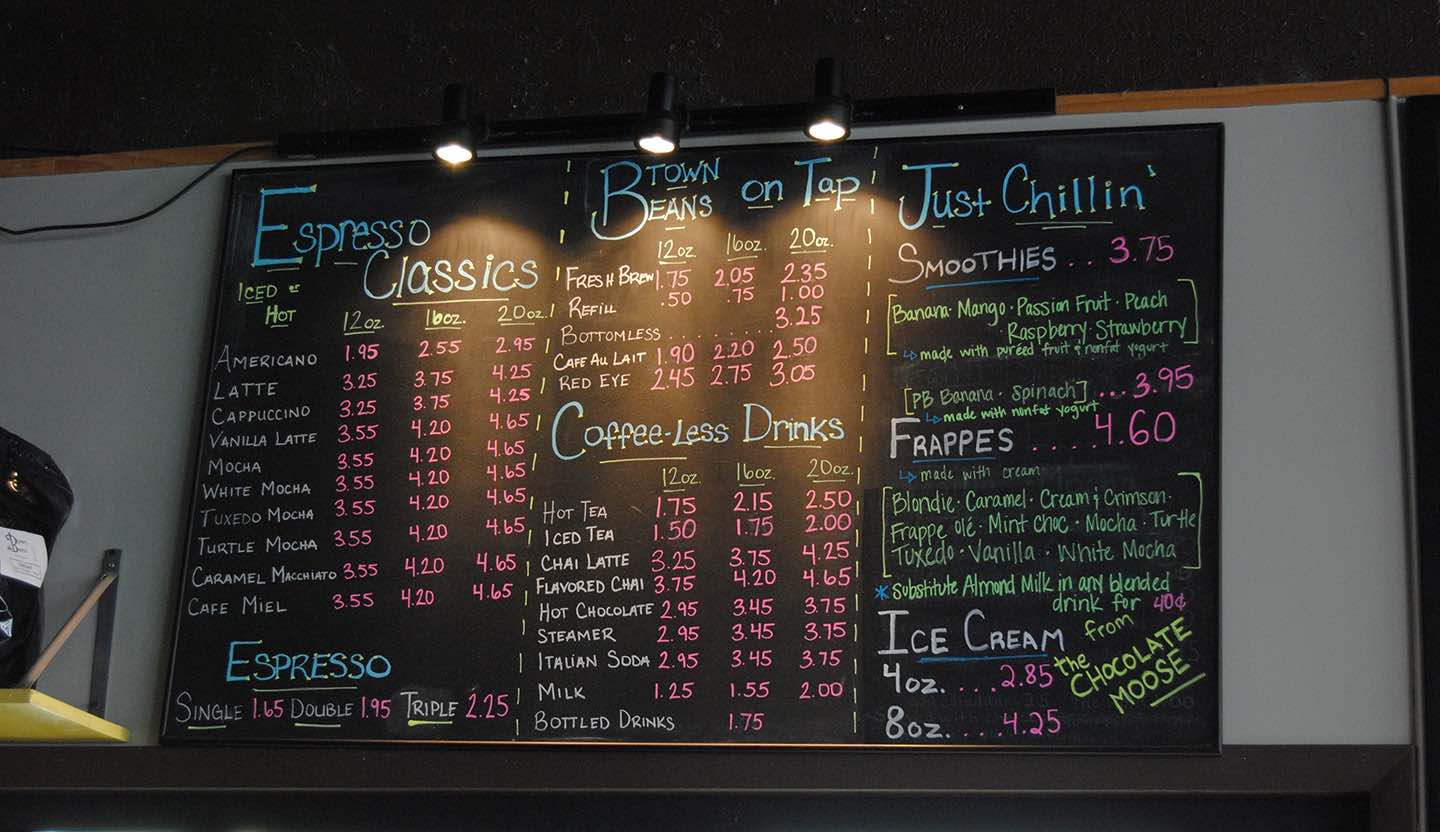 Espresso
Classics
Iced or
Hot
12oz. 16oz. 20oz.
Americano 1.95 2.55 2.95
Latte 3.25 3.75 4.25
Cappuccino 3.25 3.75 4.25
Vanilla Latte 3.55 4.20 4.65
Mocha 3.55 4.20 4.65
White Mocha 3.55 4.20 4.65
Tuxedo Mocha 3.55 4.20 4.65
Turtle Mocha 3.55 4.20 4.65
Caramel Macchiato 3.55 4.20 4.65
Cafe Miel 3.55 4.20 4.65
Espresso
Single 1.65 Double 1.95 Triple 2.25
Btown
Beans on Tap
12oz 16oz. 20oz.
Fresh Brew 1.75 2.05 2.35
Refill .50 .75 1.00
Bottomless ........ 3.25
Cafe Au Lait 1.90 2.20 2.50
Red Eye 2.45 2.75 3.05
Coffee-Less Drinks
12oz. 16oz. 20oz.
Hot Tea 1.75 2.15 2.50
Iced Tea 1.50 1.75 2.00
Chai Latte 3.25 3.75 4.25
Flavored Chai 3.75 4.20 4.65
Hot Chocolate 2.95 3.45 3.75
Steamer 2.95 3.45 3.75
Italian Soda 2.95 3.45 3.75
Milk 1.25 1.55 2.00
Bottled Drinks 1.75
Just Chillin'
Smoothies .. 3.75
[Banana · Mango · Passion Fruit · Peach
Raspberry · Strawberry]
made with puréed fruit & nonfat yogurt
[PB Banana · Spinach] ... 3.95
made with nonfat yogurt
Frappes ..... 4.60
made with cream
[Blondie · Caramel · Cream & Crimson ·
Frappe olé · Mint Choc · Mocha · Turtle
Tuxedo · Vanilla · White Mocha]
* Substitute Almond Milk in any blended
drink for 40¢
Ice Cream from
the CHOCOLATE
MOOSE
4oz. .... 2.85
8oz. .... 4.25